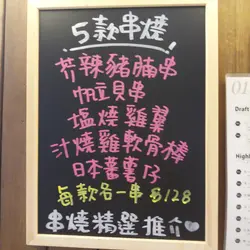 5款串燒
芥辣豬腩串
帆立貝串
塩燒雞翼
汁燒雞軟骨棒
日本蕃薯仔
每款各一串 $128
串燒精選推介
01
Draft
Highl